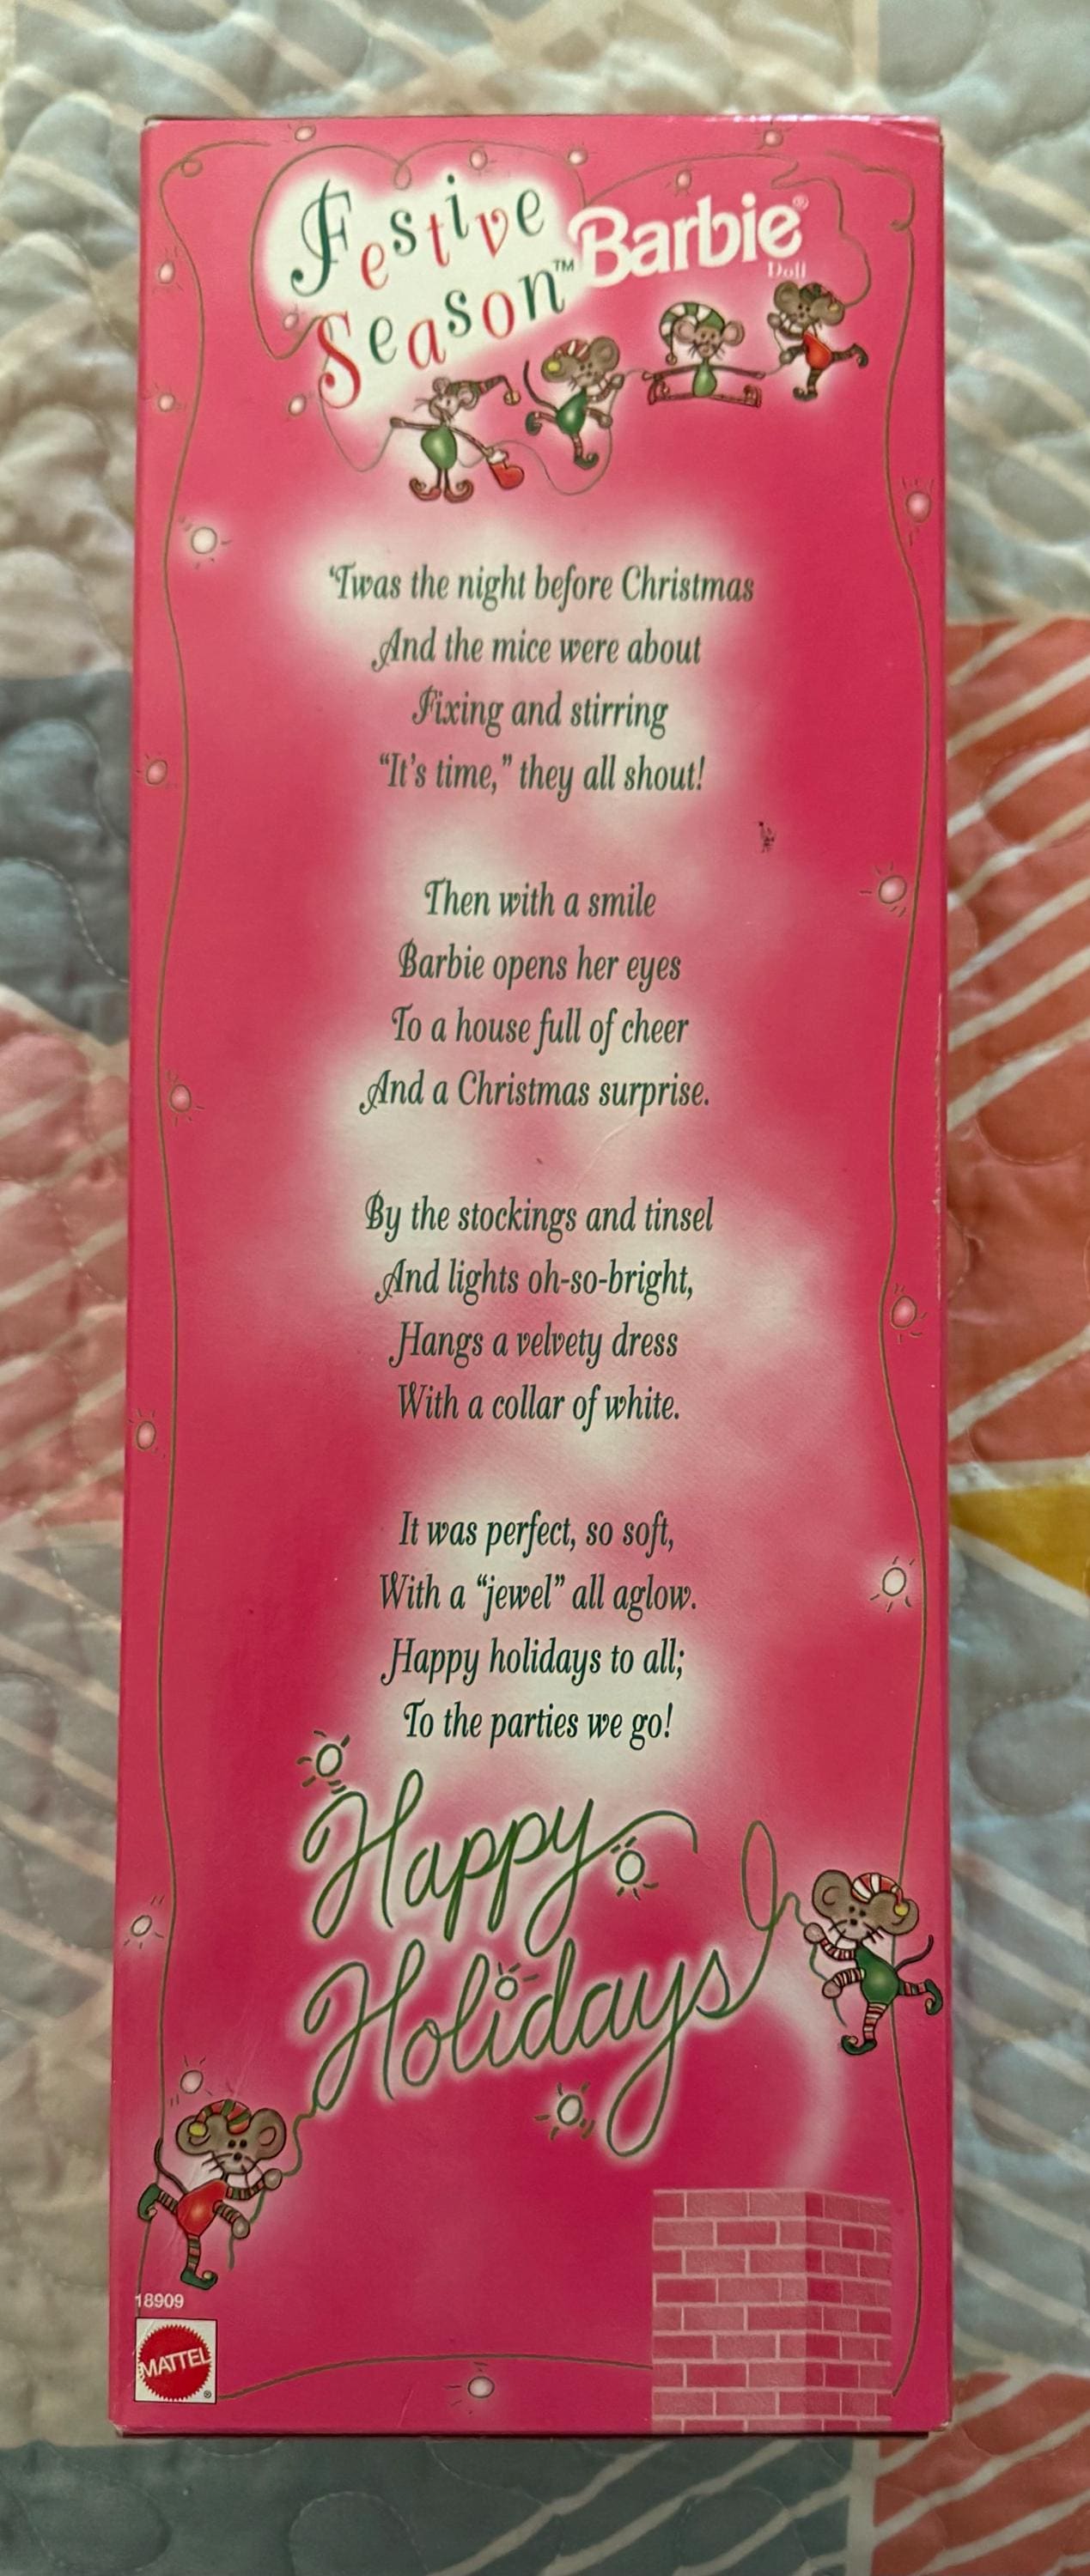 Festive
Season™
Barbie®
Doll
‘Twas the night before Christmas
And the mice were about
Fixing and stirring
“It’s time,” they all shout!
Then with a smile
Barbie opens her eyes
To a house full of cheer
And a Christmas surprise.
By the stockings and tinsel
And lights oh-so-bright,
Hangs a velvety dress
With a collar of white.
It was perfect, so soft,
With a “jewel” all aglow.
Happy holidays to all;
To the parties we go!
Happy
Holidays
18909
MATTEL
®